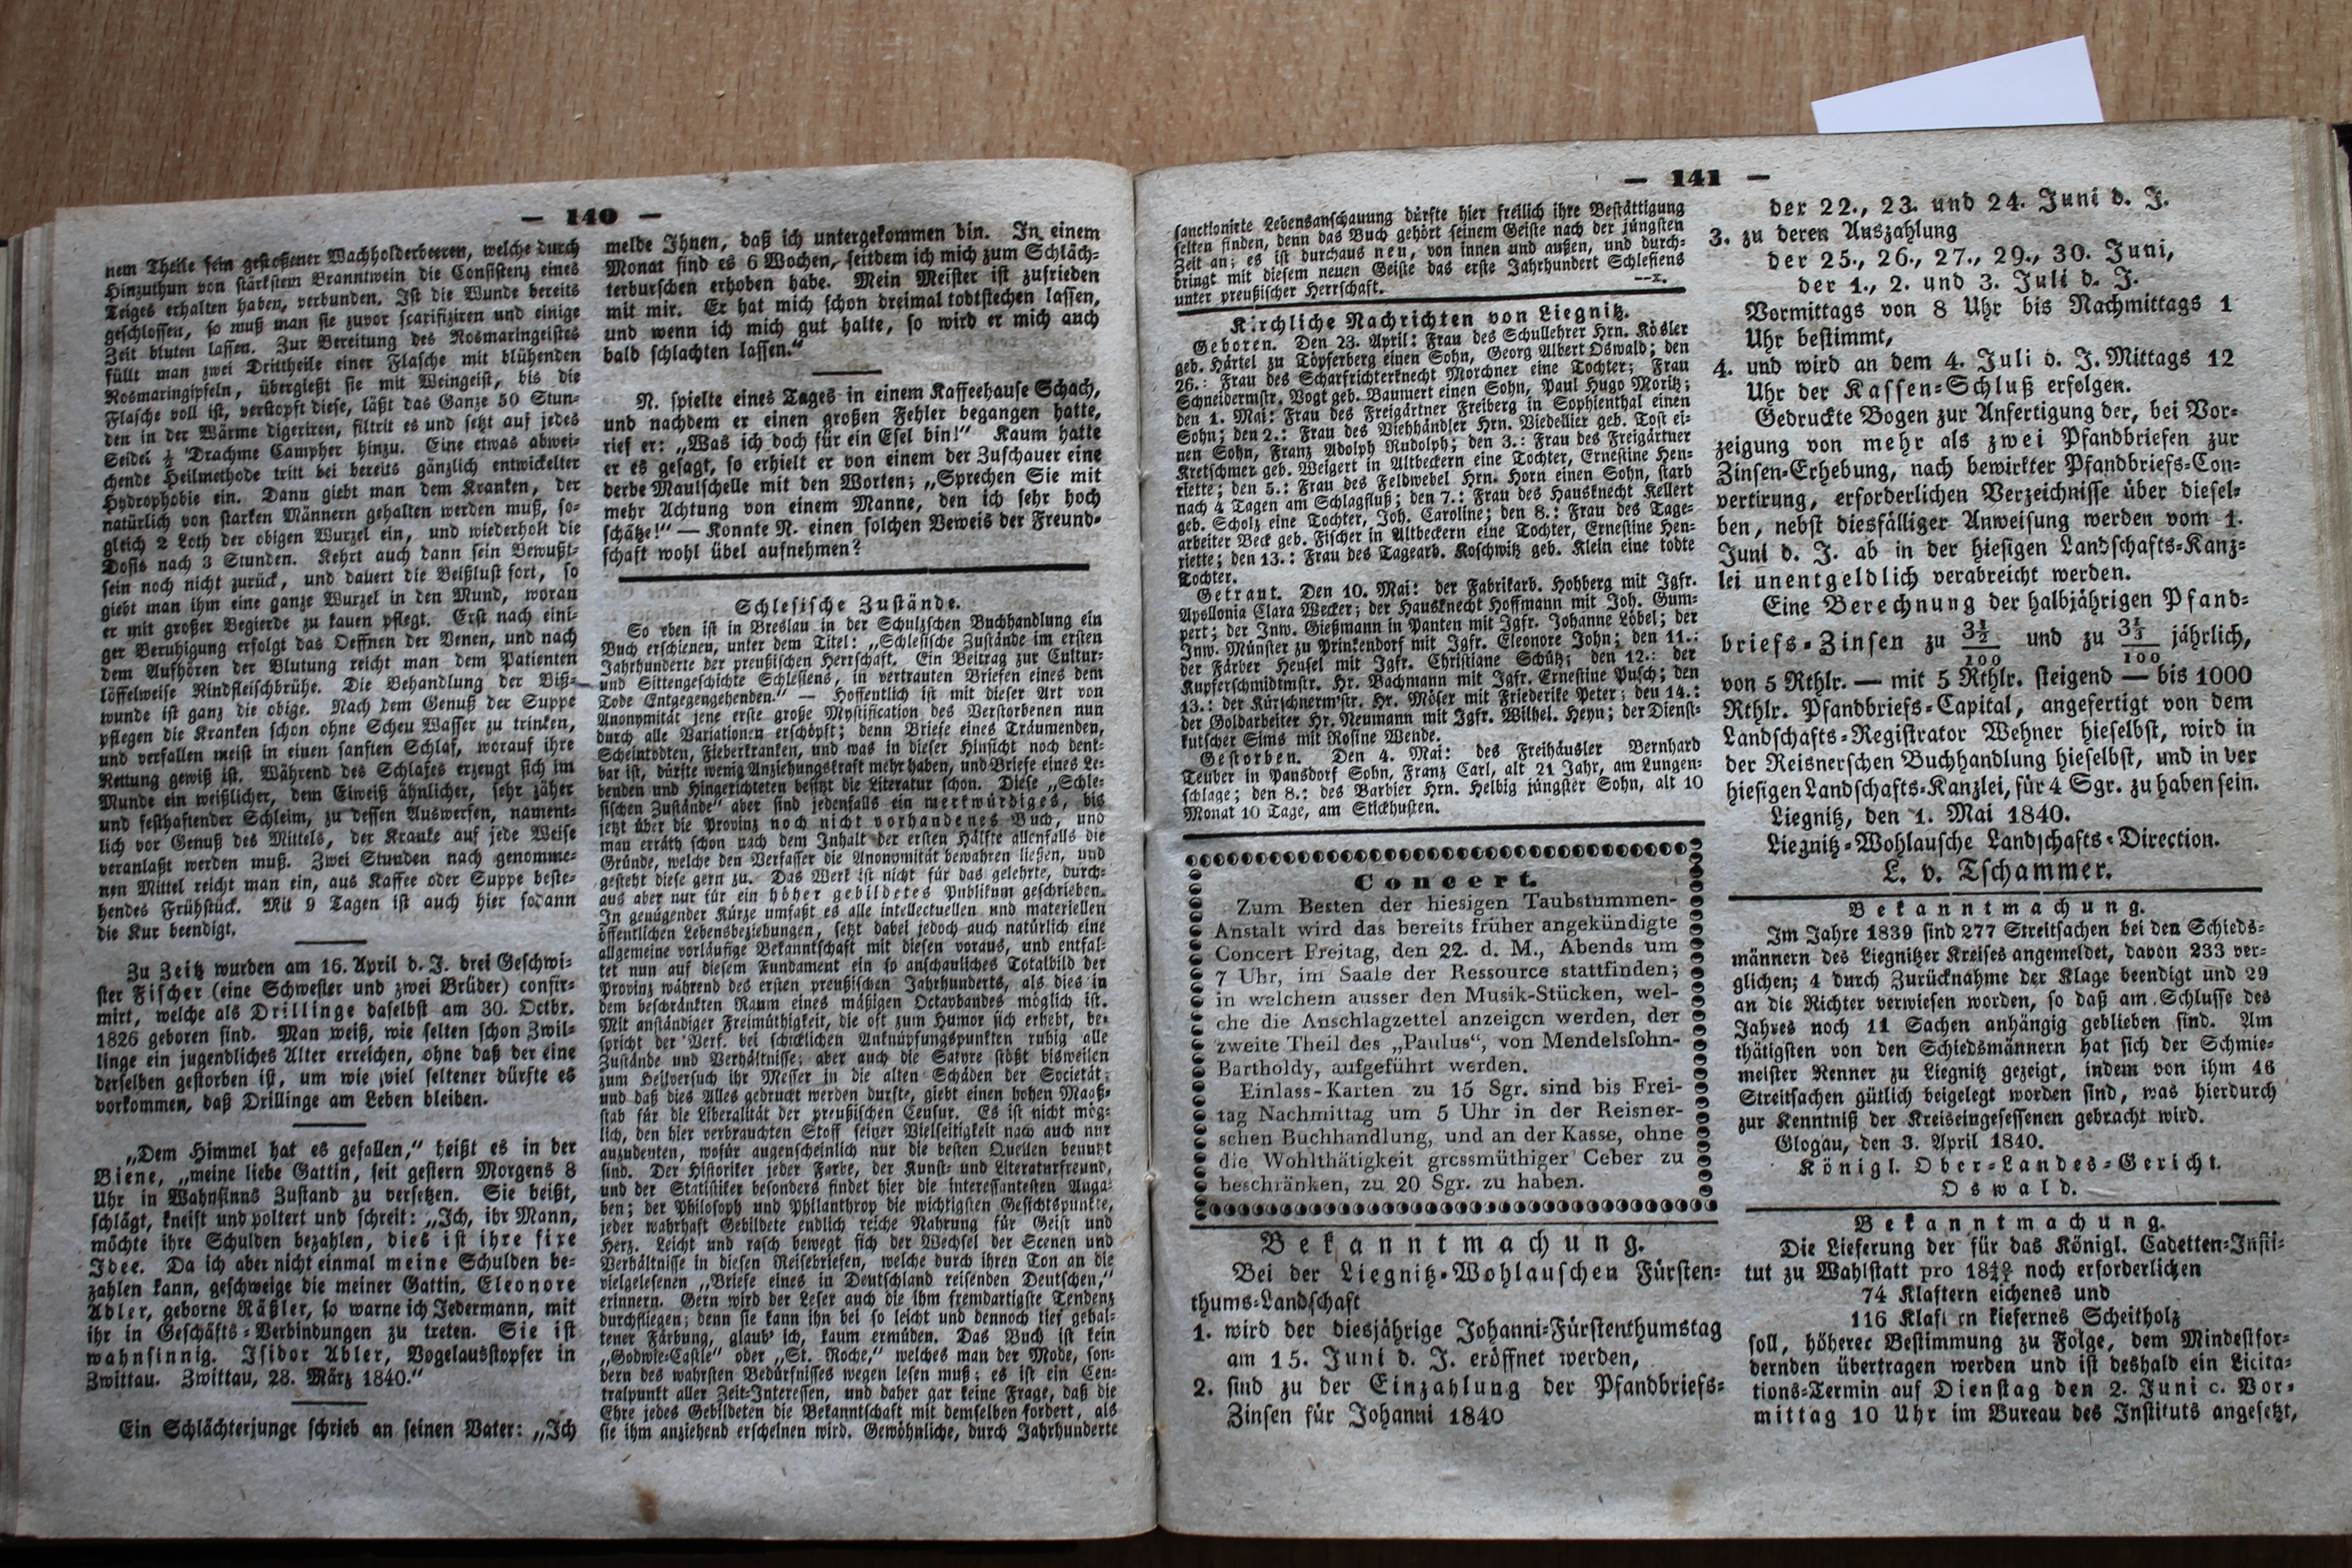 — 140 —
nem Theile fein geſtoßener Wachholderbeeren, welche durch
Hinzuthun von ſtärkſtem Branntwein die Conſiſtenz eines
Teiges erhalten haben, verbunden. Iſt die Wunde bereits
geſchloſſen, ſo muß man ſie zuvor ſcarifiziren und einige
Zeit bluten laſſen. Zur Bereitung des Rosmaringeiſtes
füllt man zwei Drittheile einer Flaſche mit blühenden
Rosmaringipfeln, übergießt ſie mit Weingeiſt, bis die
Flaſche voll iſt, verſtopft dieſe, läßt das Ganze 50 Stun-
den in der Wärme digeriren, filtrit es und ſetzt auf jedes
Seidel ½ Drachme Campher hinzu. Eine etwas abwei-
chende Heilmethode tritt bei bereits gänzlich entwickelter
Hydrophobie ein. Dann giebt man dem Kranken, der
natürlich von ſtarken Männern gehalten werden muß, ſo-
gleich 2 Loth der obigen Wurzel ein, und wiederholt die
Doſis nach 3 Stunden. Kehrt auch dann ſein Bewußt-
ſein noch nicht zurück, und dauert die Beißluſt fort, ſo
giebt man ihm eine ganze Wurzel in den Mund, woran
er mit großer Begierde zu kauen pflegt. Erſt nach eini-
ger Beruhigung erfolgt das Oeffnen der Venen, und nach
dem Aufhören der Blutung reicht man dem Patienten
löffelweiſe Rindfleiſchbrühe. Die Behandlung der Biß-
wunde iſt ganz die obige. Nach dem Genuß der Suppe
pflegen die Kranken ſchon ohne Scheu Waſſer zu trinken,
und verfallen meiſt in einen ſanften Schlaf, worauf ihre
Rettung gewiß iſt. Während des Schlafes erzeugt ſich im
Munde ein weißlicher, dem Eiweiß ähnlicher, ſehr zäher
und feſthaftender Schleim, zu deſſen Auswerfen, nament-
lich vor Genuß des Mittels, der Kranke auf jede Weiſe
veranlaßt werden muß. Zwei Stunden nach genomme-
nen Mittel reicht man ein, aus Kaffee oder Suppe beſte-
hendes Frühſtück. Mit 9 Tagen iſt auch hier ſodann
die Kur beendigt.
Zu Zeitz wurden am 16. April d. J. drei Geſchwi-
ſter Fiſcher (eine Schweſter und zwei Brüder) confir-
mirt, welche als Drillinge daſelbſt am 30. Octbr.
1826 geboren ſind. Man weiß, wie ſelten ſchon Zwil-
linge ein jugendliches Alter erreichen, ohne daß der eine
derſelben geſtorben iſt, um wie viel ſeltener dürfte es
vorkommen, daß Drillinge am Leben bleiben.
„Dem Himmel hat es gefallen,“ heißt es in der
Biene, „meine liebe Gattin, ſeit geſtern Morgens 8
Uhr in Wahnſinns Zuſtand zu verſetzen. Sie beißt,
ſchlägt, kneift und poltert und ſchreit: „Ich, ihr Mann,
möchte ihre Schulden bezahlen, dies iſt ihre fixe
Idee. Da ich aber nicht einmal meine Schulden be-
zahlen kann, geſchweige die meiner Gattin, Eleonore
Adler, geborne Räßler, ſo warne ich Jedermann, mit
ihr in Geſchäfts-Verbindungen zu treten. Sie iſt
wahnſinnig. Iſidor Adler, Vogelausſtopfer in
Zwittau. Zwittau, 28. März 1840.“
Ein Schlächterjunge ſchrieb an ſeinen Vater: „Ich
melde Ihnen, daß ich untergekommen bin. In einem
Monat ſind es 6 Wochen, ſeitdem ich mich zum Schläch-
terburſchen erhoben habe. Mein Meiſter iſt zufrieden
mit mir. Er hat mich ſchon dreimal todtſtechen laſſen,
und wenn ich mich gut halte, ſo wird er mich auch
bald ſchlachten laſſen.“
N. ſpielte eines Tages in einem Kaffeehauſe Schach,
und nachdem er einen großen Fehler begangen hatte,
rief er: „Was ich doch für ein Eſel bin!“ Kaum hatte
er es geſagt, ſo erhielt er von einem der Zuſchauer eine
derbe Maulſchelle mit den Worten; „Sprechen Sie mit
mehr Achtung von einem Manne, den ich ſehr hoch
ſchätze!“ — Konnte N. einen ſolchen Beweis der Freund-
ſchaft wohl übel aufnehmen?
Schleſiſche Zuſtände.
So eben iſt in Breslau in der Schulzſchen Buchhandlung ein
Buch erſchienen, unter dem Titel: „Schleſiſche Zuſtände im erſten
Jahrhunderte der preußiſchen Herrſchaft. Ein Beitrag zur Cultur-
und Sittengeſchichte Schleſiens, in vertrauten Briefen eines dem
Tode Entgegengehenden.“ — Hoffentlich iſt mit dieſer Art von
Anonymität jene erſte große Myſtification des Verſtorbenen nun
durch alle Variationen erſchöpft; denn Briefe eines Träumenden,
Scheintodten, Fieberkranken, und was in dieſer Hinſicht noch denk-
bar iſt, dürfte wenig Anziehungskraft mehr haben, und Briefe eines Le-
benden und Hingerichteten beſitzt die Literatur ſchon. Dieſe „Schle-
ſiſchen Zuſtände“ aber ſind jedenfalls ein merkwürdiges, bis
jetzt über die Provinz noch nicht vorhandenes Buch, und
man erräth ſchon nach dem Inhalt der erſten Hälfte allenfalls die
Gründe, welche den Verfaſſer die Anonymität bewahren ließen, und
geſteht dieſe gern zu. Das Werk iſt nicht für das gelehrte, durch-
aus aber nur für ein höher gebildetes Publikum geſchrieben.
In genügender Kürze umfaßt es alle intellectuellen und materiellen
öffentlichen Lebensbeziehungen, ſetzt dabei jedoch auch natürlich eine
allgemeine vorläufige Bekanntſchaft mit dieſen voraus, und entfal-
tet nun auf dieſem Fundament ein ſo anſchauliches Totalbild der
Provinz während des erſten preußiſchen Jahrhunderts, als dies in
dem beſchränkten Raum eines mäßigen Octavbandes möglich iſt.
Mit anſtändiger Freimüthigkeit, die oft zum Humor ſich erhebt, be-
ſpricht der Verf. bei ſchicklichen Anknüpfungspunkten ruhig alle
Zuſtände und Verhältniſſe; aber auch die Satyre ſtößt bisweilen
zum Heilverſuch ihr Meſſer in die alten Schäden der Societät;
und daß dies Alles gedruckt werden durfte, giebt einen hohen Maaß-
ſtab für die Liberalität der preußiſchen Cenſur. Es iſt nicht mög-
lich, den hier verbrauchten Stoff ſeiner Vielſeitigkeit nach auch nur
anzudeuten, wofür augenſcheinlich nur die beſten Quellen benutzt
ſind. Der Hiſtoriker jeder Farbe, der Kunſt- und Literaturfreund,
und der Statiſtiker beſonders findet hier die intereſſanteſten Anga-
ben; der Philoſoph und Philanthrop die wichtigſten Geſichtspunkte,
jeder wahrhaft Gebildete endlich reiche Nahrung für Geiſt und
Herz. Leicht und raſch bewegt ſich der Wechſel der Scenen und
Verhältniſſe in dieſen Reiſebriefen, welche durch ihren Ton an die
vielgeleſenen „Briefe eines in Deutſchland reiſenden Deutſchen,“
erinnern. Gern wird der Leſer auch die ihm fremdartigſte Tendenz
durchfliegen; denn ſie kann ihn bei ſo leicht und dennoch tief gehal-
tener Färbung, glaub' ich, kaum ermüden. Das Buch iſt kein
„Godwie-Caſtle“ oder „St. Roche,“ welches man der Mode, ſon-
dern des wahrſten Bedürfniſſes wegen leſen muß; es iſt ein Cen-
tralpunkt aller Zeit-Intereſſen, und daher gar keine Frage, daß die
Ehre jedes Gebildeten die Bekanntſchaft mit demſelben fordert, als
ſie ihm anziehend erſcheinen wird. Gewöhnliche, durch Jahrhunderte
— 141 —
ſanctionirte Lebensanſchauung dürfte hier freilich ihre Beſtättigung
ſelten finden, denn das Buch gehört ſeinem Geiſte nach der jüngſten
Zeit an; es iſt durchaus neu, von innen und außen, und durch-
dringt mit dieſem neuen Geiſte das erſte Jahrhundert Schleſiens
unter preußiſcher Herrſchaft. —x.
Kirchliche Nachrichten von Liegnitz.
Geboren. Den 23. April: Frau des Schullehrer Hrn. Kösler
geb. Härtel zu Töpferberg einen Sohn, Georg Albert Oswald; den
26.: Frau des Scharfrichterknecht Morchner eine Tochter; Frau
Schneidermſtr. Vogt geb. Baumert einen Sohn, Paul Hugo Moritz;
den 1. Mai: Frau des Freigärtner Freiberg in Sophienthal einen
Sohn; den 2.: Frau des Viehhändler Hrn. Viedellier geb. Toſt ei-
nen Sohn, Franz Adolph Rudolph; den 3.: Frau des Freigärtner
Kretſchmer geb. Weigert in Altbeckern eine Tochter, Erneſtine Hen-
riette; den 5.: Frau des Feldwebel Hrn. Horn einen Sohn, ſtarb
nach 4 Tagen am Schlagfluß; den 7.: Frau des Hausknecht Kellert
geb. Scholz eine Tochter, Joh. Caroline; den 8.: Frau des Tage-
arbeiter Beck geb. Fiſcher in Altbeckern eine Tochter, Erneſtine Hen-
riette; den 13.: Frau des Tagearb. Koſchwitz geb. Klein eine todte
Tochter.
Getraut. Den 10. Mai: der Fabrikarb. Hohberg mit Igfr.
Apollonia Clara Wecker; der Hausknecht Hoffmann mit Joh. Gum-
pert; der Inw. Gießmann in Panten mit Igfr. Johanne Löbel; der
Inw. Münſter zu Prinkendorf mit Igfr. Eleonore John; den 11.:
der Färber Henſel mit Igfr. Chriſtiane Schütz; den 12.: der
Kupferſchmidtmſtr. Hr. Bachmann mit Igfr. Erneſtine Puſch; den
13.: der Kürſchnermſtr. Hr. Möſer mit Friederike Peter; den 14.:
der Goldarbeiter Hr. Neumann mit Igfr. Wilhel. Heyn; der Dienſt-
kutſcher Sims mit Roſine Wende.
Geſtorben. Den 4. Mai: des Freihäusler Bernhard
Teuber in Pansdorf Sohn, Franz Carl, alt 21 Jahr, am Lungen-
ſchlage; den 8.: des Barbier Hrn. Helbig jüngſter Sohn, alt 10
Monat 10 Tage, am Stickhuſten.
Concert.
Zum Besten der hiesigen Taubstummen-
Anstalt wird das bereits früher angekündigte
Concert Freitag, den 22. d. M., Abends um
7 Uhr, im Saale der Ressource stattfinden;
in welchem ausser den Musik-Stücken, wel-
che die Anschlagzettel anzeigen werden, der
zweite Theil des „Paulus“, von Mendelsſohn-
Bartholdy, aufgeführt werden.
Einlass-Karten zu 15 Sgr. sind bis Frei-
tag Nachmittag um 5 Uhr in der Reisner-
schen Buchhandlung, und an der Kasse, ohne
die Wohlthätigkeit grossmüthiger Geber zu
beschränken, zu 20 Sgr. zu haben.
Bekanntmachung.
Bei der Liegnitz-Wohlauſchen Fürſten-
thums-Landſchaft
1. wird der diesjährige Johanni-Fürſtenthumstag
am 15. Juni d. J. eröffnet werden,
2. ſind zu der Einzahlung der Pfandbriefs-
Zinſen für Johanni 1840
der 22., 23. und 24. Juni d. J.
3. zu deren Auszahlung
der 25., 26., 27., 29., 30. Juni,
der 1., 2. und 3. Juli d. J.
Vormittags von 8 Uhr bis Nachmittags 1
Uhr beſtimmt,
4. und wird an dem 4. Juli d. J. Mittags 12
Uhr der Kaſſen-Schluß erfolgen.
Gedruckte Bogen zur Anfertigung der, bei Vor-
zeigung von mehr als zwei Pfandbriefen zur
Zinſen-Erhebung, nach bewirkter Pfandbriefs-Con-
vertirung, erforderlichen Verzeichniſſe über dieſel-
ben, nebſt diesfälliger Anweiſung werden vom 1.
Juni d. J. ab in der hieſigen Landſchafts-Kanz-
lei unentgeldlich verabreicht werden.
Eine Berechnung der halbjährigen Pfand-
briefs-Zinſen zu 3½/100 und zu 3⅓/100 jährlich,
von 5 Rthlr. — mit 5 Rthlr. ſteigend — bis 1000
Rthlr. Pfandbriefs-Capital, angefertigt von dem
Landſchafts-Regiſtrator Wehner hieſelbſt, wird in
der Reisnerſchen Buchhandlung hieſelbſt, und in der
hieſigen Landſchafts-Kanzlei, für 4 Sgr. zu haben ſein.
Liegnitz, den 1. Mai 1840.
Liegnitz-Wohlauſche Landſchafts-Direction.
L. v. Tſchammer.
Bekanntmachung.
Im Jahre 1839 ſind 277 Streitſachen bei den Schieds-
männern des Liegnitzer Kreiſes angemeldet, davon 233 ver-
glichen; 4 durch Zurücknahme der Klage beendigt und 29
an die Richter verwieſen worden, ſo daß am Schluſſe des
Jahres noch 11 Sachen anhängig geblieben ſind. Am
thätigſten von den Schiedsmännern hat ſich der Schmie-
meiſter Renner zu Liegnitz gezeigt, indem von ihm 46
Streitſachen gütlich beigelegt worden ſind, was hierdurch
zur Kenntniß der Kreiseingeſeſſenen gebracht wird.
Glogau, den 3. April 1840.
Königl. Ober-Landes-Gericht.
Oswald.
Bekanntmachung.
Die Lieferung der für das Königl. Cadetten-Inſti-
tut zu Wahlſtatt pro noch erforderlichen
74 Klaftern eichenes und
116 Klaftern kiefernes Scheitholz
ſoll, höherer Beſtimmung zu Folge, dem Mindeſtfor-
dernden übertragen werden und iſt deshalb ein Licita-
tions-Termin auf Dienſtag den 2. Juni c. Vor-
mittag 10 Uhr im Bureau des Inſtituts angeſetzt,